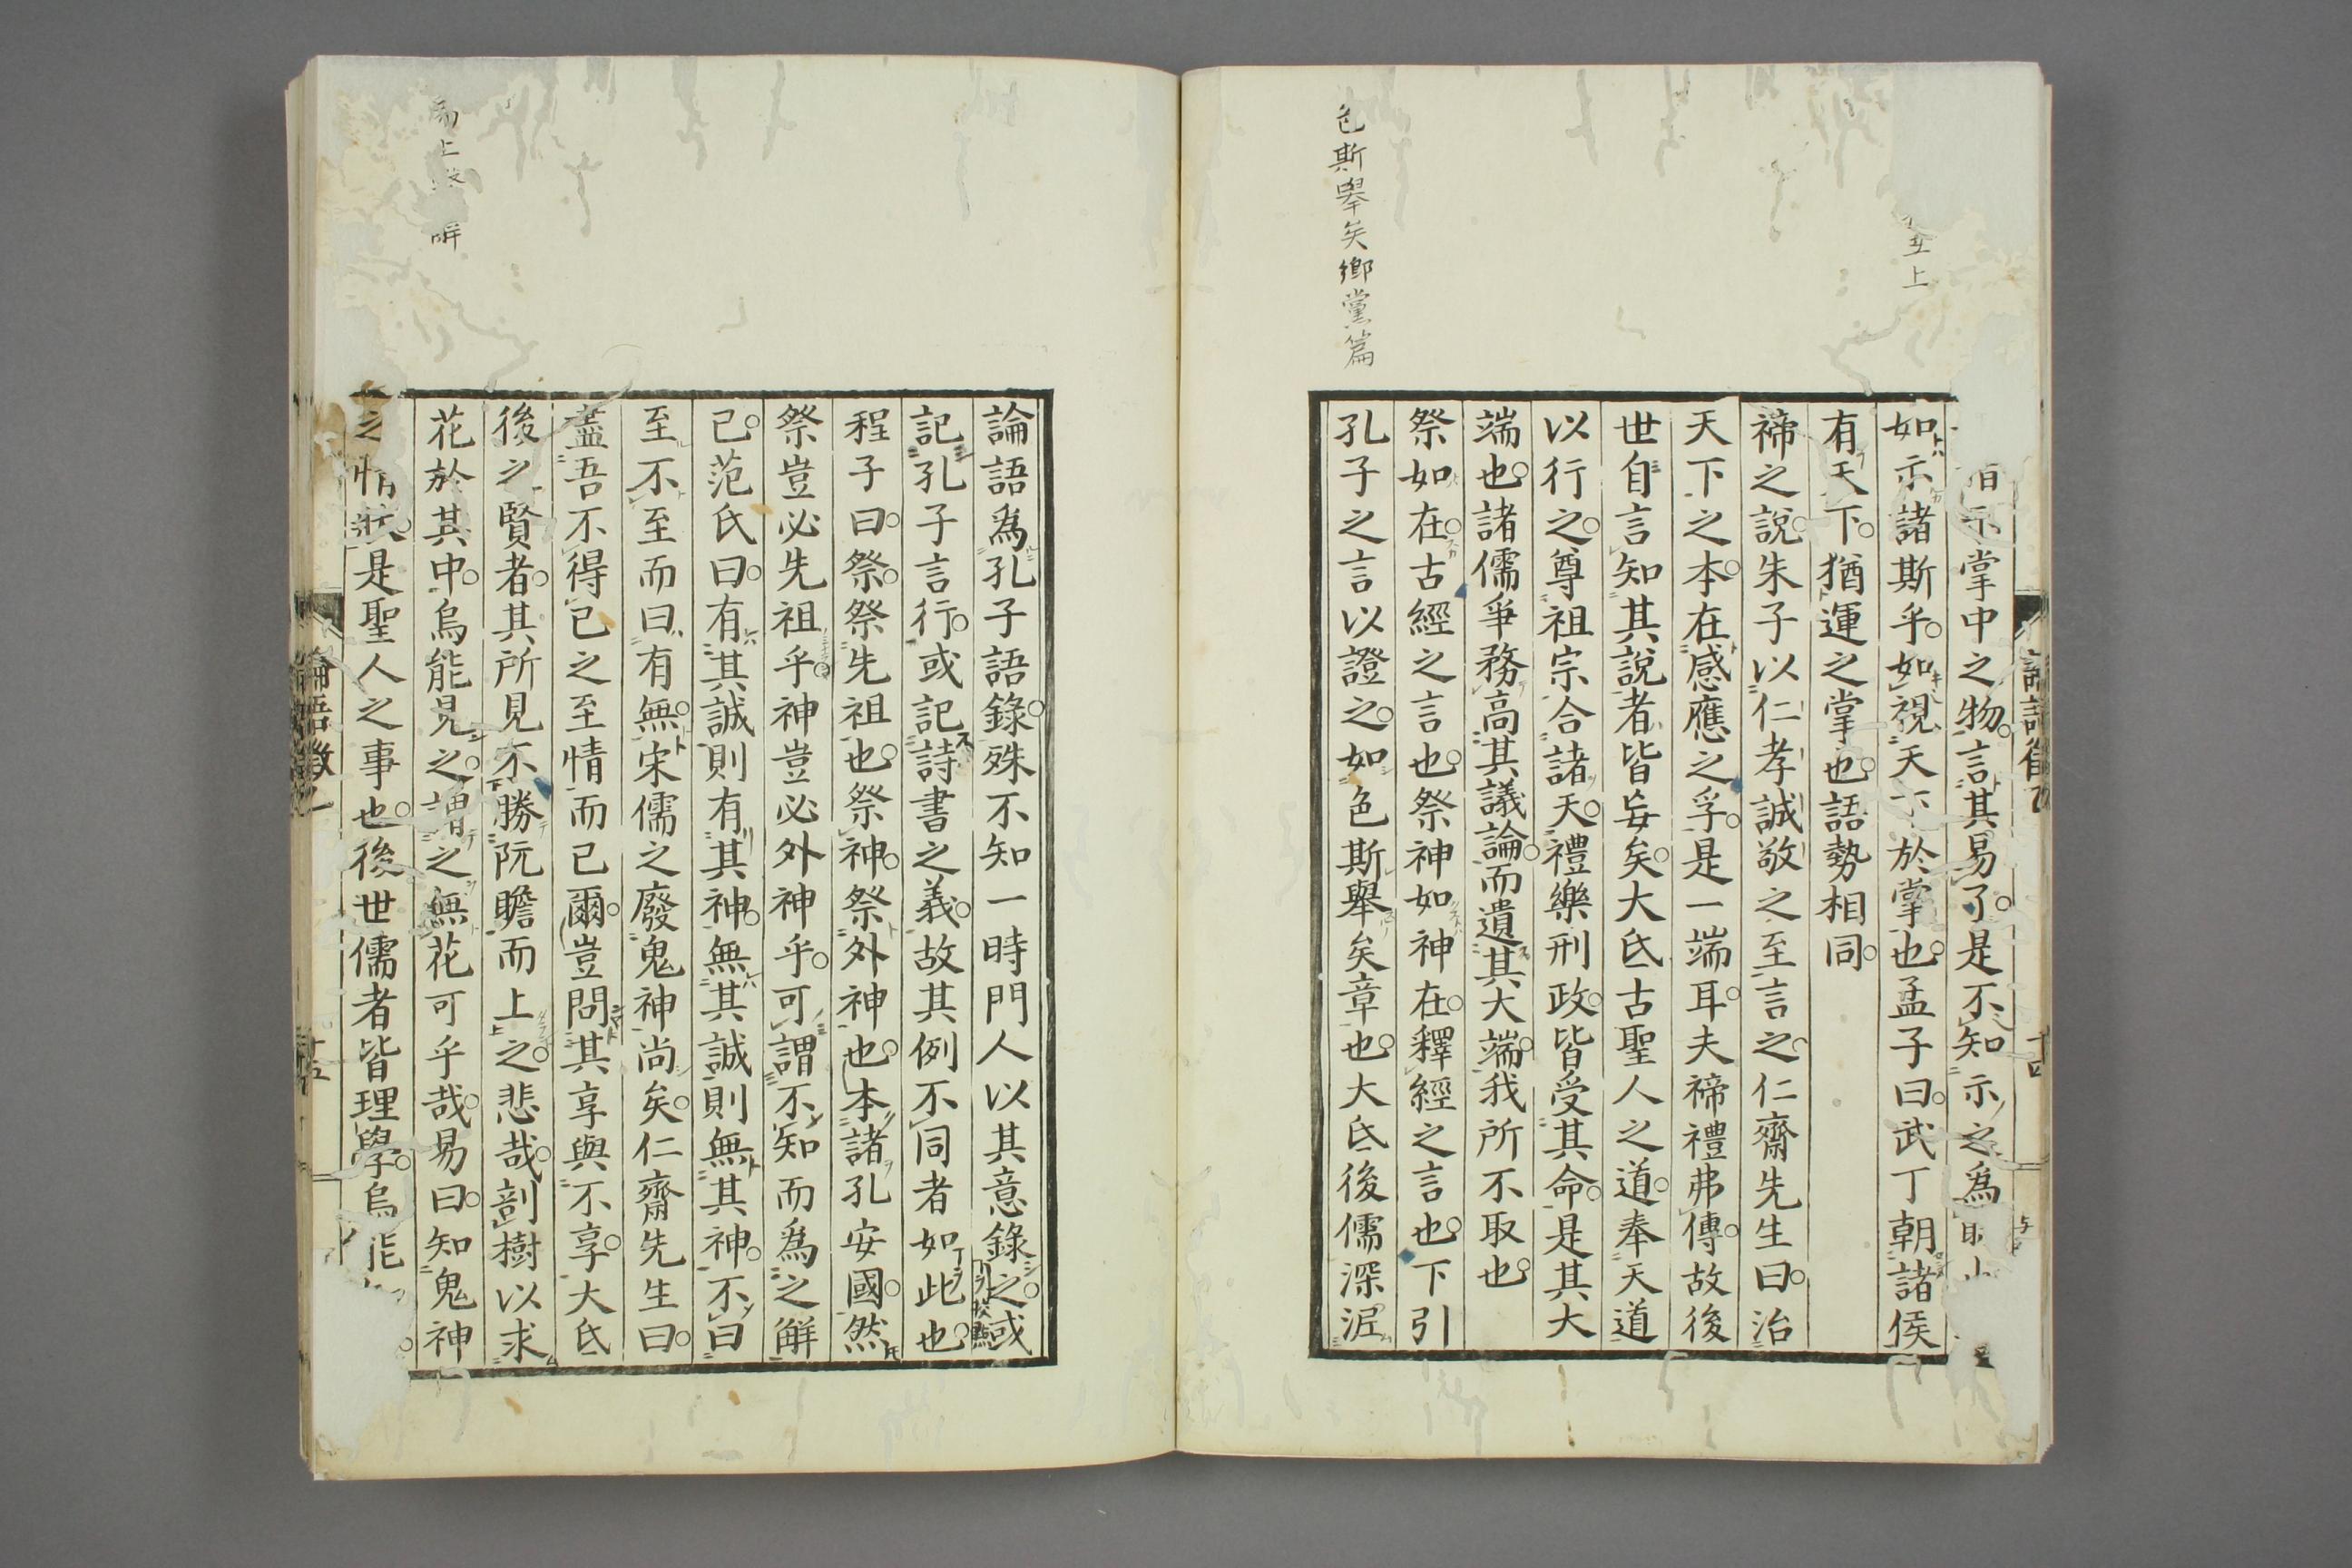 上
色斯舉矣鄉黨篇
示掌中之物言其易了是不知示之爲
如示諸斯乎如視天下於掌也孟子曰武丁朝諸侯
有天下猶運之掌也語勢相同
禘之說朱子以仁孝誠敬之至言之仁齋先生曰治
天下之本在感應之孚是一端耳夫禘禮弗傳故後
世自言知其說者皆妄矣大氐古聖人之道奉天道
以行之尊祖宗合諸天禮樂刑政皆受其命是其大
端也諸儒爭務高其議論而遺其大端我所不取也
祭如在古經之言也祭神如神在釋經之言也下引
孔子之言以證之如色斯舉矣章也大氐後儒深泥
論語爲孔子語錄殊不知一時門人以其意錄之或
記孔子言行或記詩書之義故其例不同者如此也
程子曰祭祭先祖也祭神祭外神也本諸孔安國然
祭豈必先祖乎神豈必外神乎可謂不知而爲之解
已范氏曰有其誠則有其神無其誠則無其神不曰
至不至而曰有無宋儒之廢鬼神尚矣仁齋先生曰
盡吾不得已之至情而已爾豈問其享與不享大氐
後之賢者其所見不勝阮瞻而上之悲哉剖樹以求
花於其中烏能見之謂之無花可乎哉易曰知鬼神
之情狀是聖人之事也後世儒者皆理學烏能
論語徵乙
十四
十五